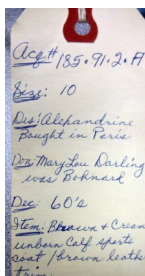 Acq# 185.91.2.A
Size: 10
Des: Alexandrine
Bought in Paris
Don: Mary Lou Darling
was Bohnard
Dec: 60's
Item: Brown & Cream
unborn calf sports
coat / brown leather
trim